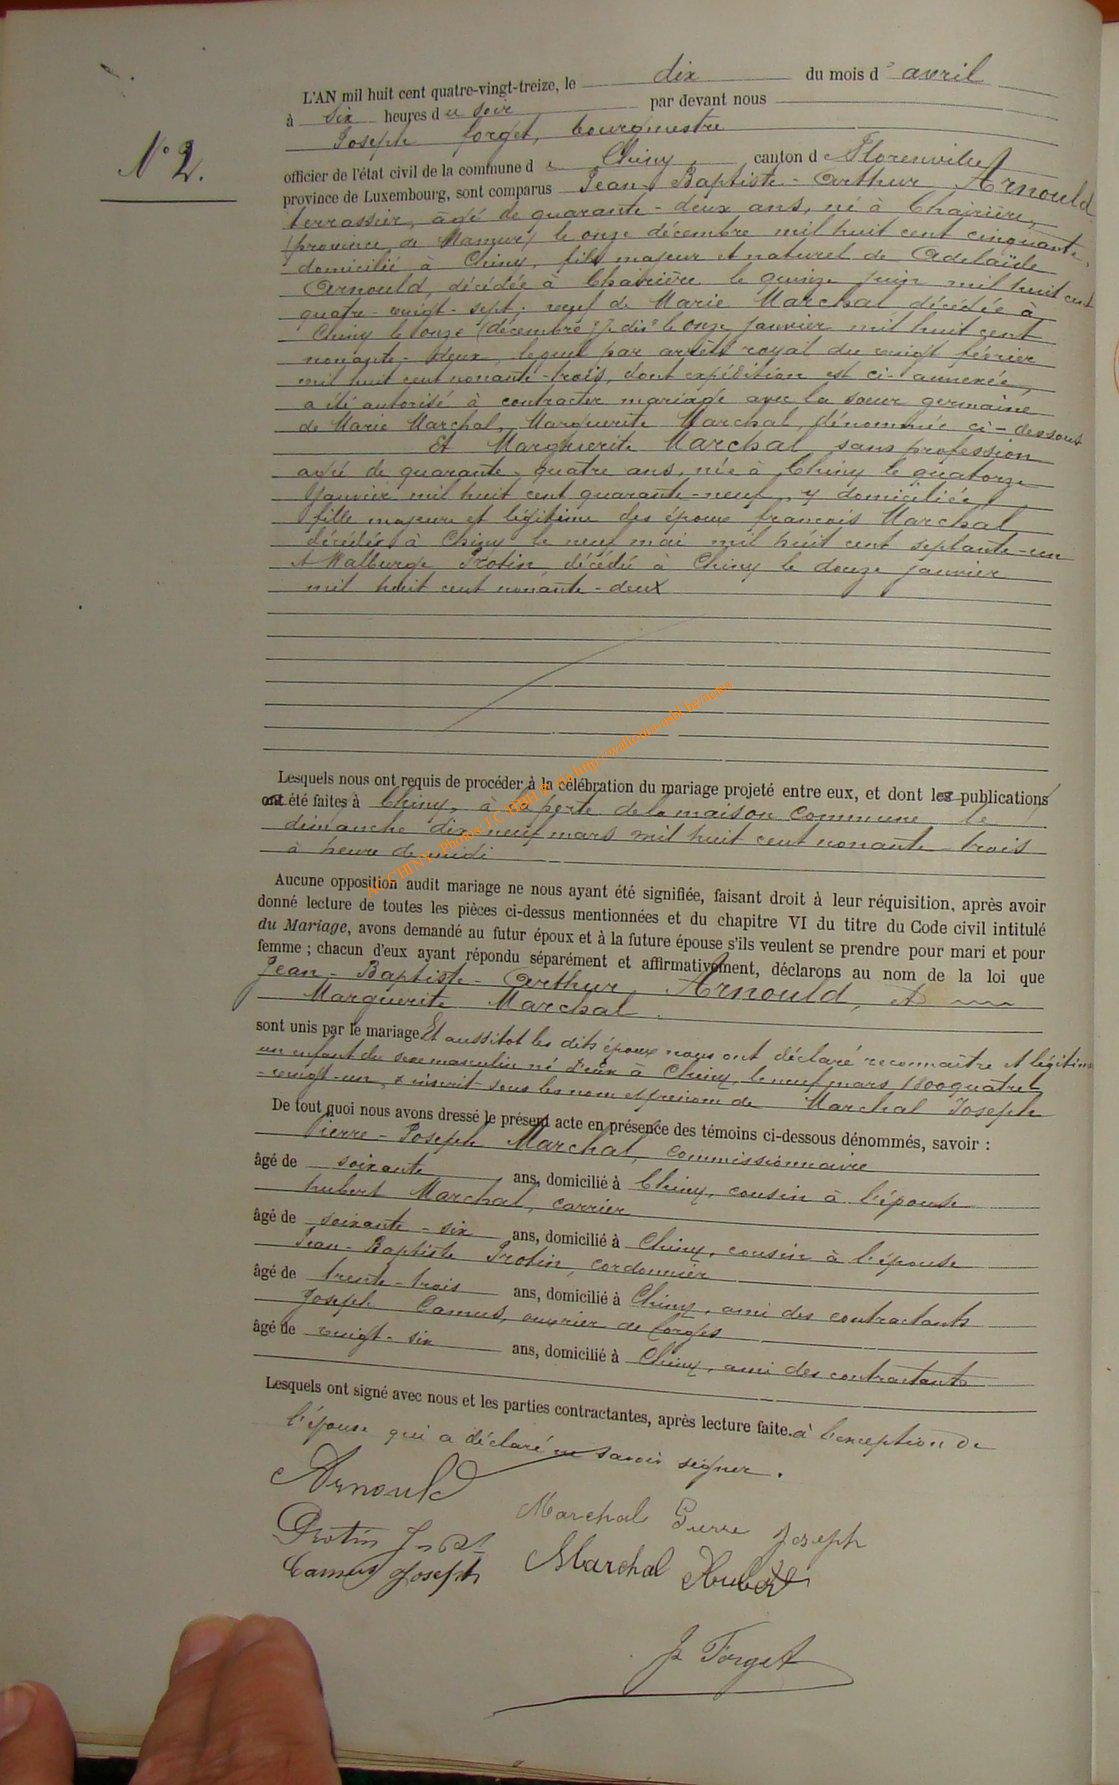 L'AN mil huit cent quatre-vingt-treize, le dix du mois d' avril
à six heures du soir par devant nous
Joseph forget, bourgmestre
N° 2.
officier de l'état civil de la commune de Chiny, canton de Florenville
province de Luxembourg, sont comparus Jean-Baptiste-Arthur Arnould
terrassier, âgé de quarante-deux ans, né à Chairière,
(province de Namur) le onze décembre mil huit cent cinquante,
domicilié à Chiny, fils majeur et naturel de Adelaïde
Arnould, décédée à Chairière le quinze juin mil huit cent
quatre-vingt-sept; veuf de Marie Marchal décédée à
Chiny le onze (décembre) je dis le onze janvier mil huit cent
nonante-deux, lequel par arrêté royal du vingt février
mil huit cent nonante-trois, dont expédition est ci-annexée,
a été autorisé à contracter mariage avec la soeur germaine
de Marie Marchal, Marguerite Marchal, dénommée ci-dessous
Et Marguerite Marchal sans profession
agée de quarante-quatre ans, née à Chiny le quatorze
Janvier mil huit cent quarante-neuf, y domiciliée,
fille majeure et légitime des époux françois Marchal
décédés à Chiny le neuf mai mil huit cent septante-un
et Walburge Protin, décédé à Chiny le douze janvier
mil huit cent nonante-deux
Lesquels nous ont requis de procéder à la célébration du mariage projeté entre eux, et dont les publications
ont été faites à Chiny, à la porte de la maison commune le
dimanche dix-neuf mars mil huit cent nonante-trois
à heure de midi
Aucune opposition audit mariage ne nous ayant été signifiée, faisant droit à leur réquisition, après avoir
donné lecture de toutes les pièces ci-dessus mentionnées et du chapitre VI du titre du Code civil intitulé
du Mariage, avons demandé au futur époux et à la future épouse s'ils veulent se prendre pour mari et pour
femme ; chacun d'eux ayant répondu séparément et affirmativement, déclarons au nom de la loi que
Jean-Baptiste-Arthur Arnould, et
Marguerite Marchal.
sont unis par le mariage Et aussitot les dits époux nous ont déclaré reconnaître et légitimer
un enfant du sexe masculin né d'eux à Chiny, le neuf mars 1800 quatre
-vingt-un, & inscrit sous les nom et prenom de Marchal Joseph
De tout quoi nous avons dressé le présent acte en présence des témoins ci-dessous dénommés, savoir :
Pierre-Joseph Marchal, commissionnaire
âgé de soixante ans, domicilié à Chiny, cousin à l'épouse
hubert Marchal, carrier
âgé de soixante-six ans, domicilié à Chiny, cousin à l'épouse
Jean-Baptiste Protin, cordonnier
âgé de trente-trois ans, domicilié à Chiny, ami des contractants
Joseph Camus, ouvrier de forges
âgé de vingt-six ans, domicilié à Chiny, ami des contractants
Lesquels ont signé avec nous et les parties contractantes, après lecture faite. à l'exception de
l'épouse qui a déclaré ne savoir signer.
Arnould
Marchal Pierre Joseph
Protin
Marchal Hubert
Camus Joseph
J Forget